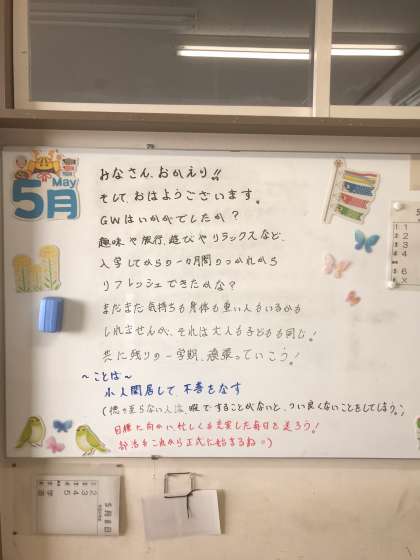 5月
May
みなさん、おかえり!!
そして、おはようございます。
GWはいかがでしたか？
趣味や旅行、遊びやリラックスなど、
入学してからの一ヵ月間のつかれから
リフレッシュできたかな？
まだまだ気持ちも身体も重い人もいるかも
しれませんが、それは大人も子どもも同じ！
共に残りの一学期、頑張っていこう！
～ことば～
小人閑居して、不善をなす
(徳の至らない人は、暇ですることがないと、つい良くないことをしてしまう。)
目標に向かい忙しくも充実した毎日を送ろう！
部活もこれから正式に始まるね
1 1
2 2
3 3
4 4
6
X
5月8日